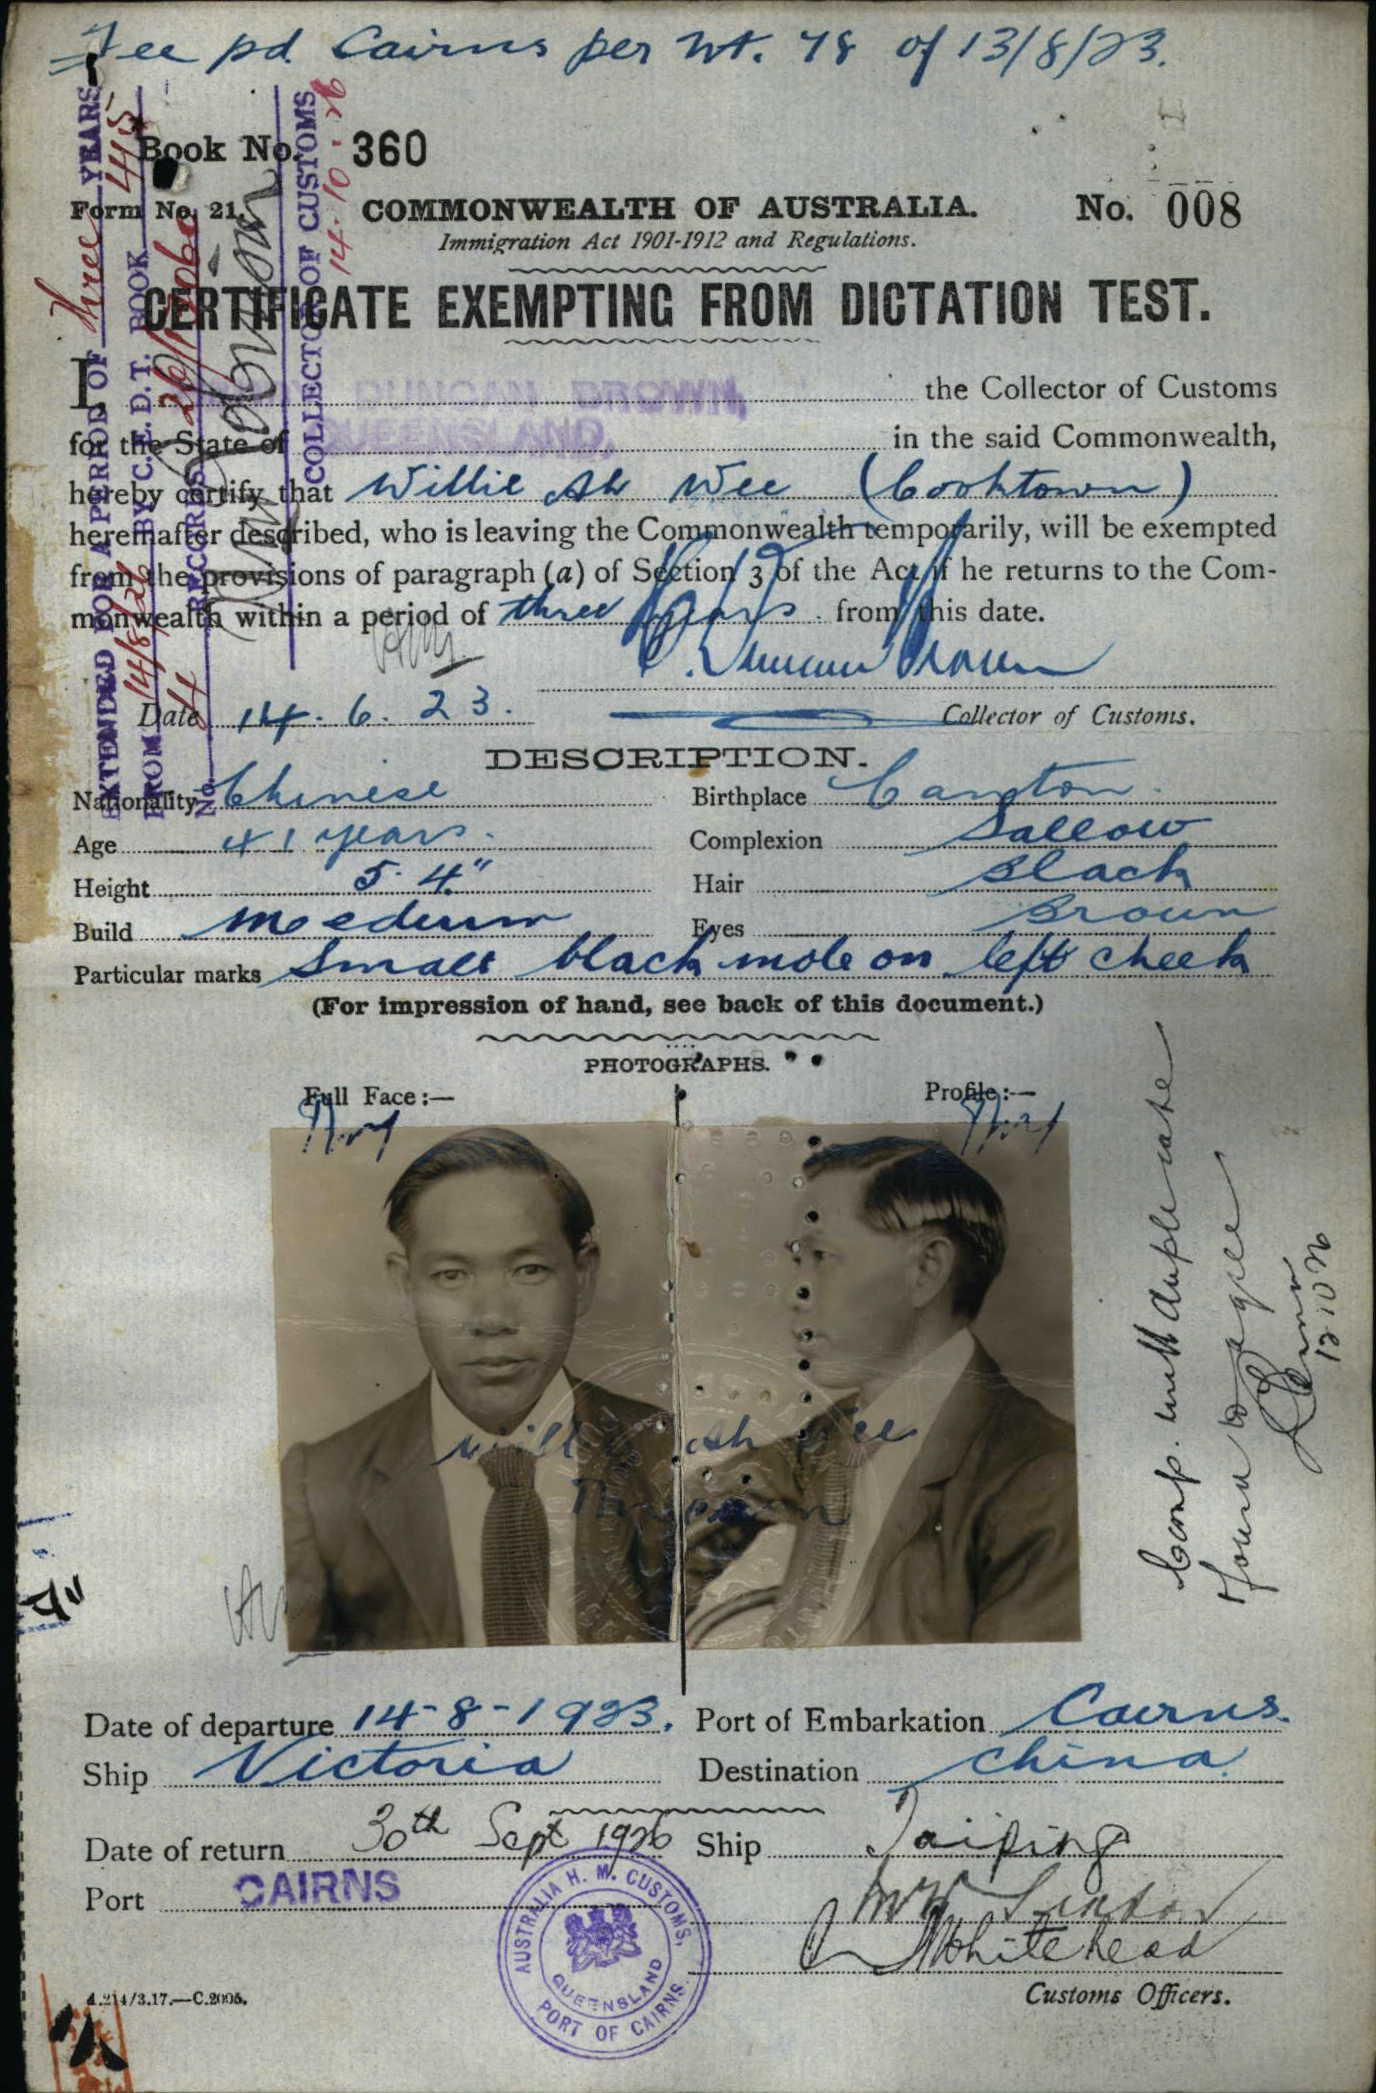 Fee pd Cairns per Wt. 78 of 13/8/23.
Book No. 360
Form No. 21.
COMMONWEALTH OF AUSTRALIA.
No. 008
Immigration Act 1901-1912 and Regulations.
CERTIFICATE EXEMPTING FROM DICTATION TEST.
I DUNCAN BROWN, the Collector of Customs
for the State of QUEENSLAND. in the said Commonwealth,
hereby certify that Willie Ah Wee (Cooktown)
hereinafter described, who is leaving the Commonwealth temporarily, will be exempted
from the provisions of paragraph (a) of Section 3 of the Act if he returns to the Com-
monwealth within a period of three years from this date.
Duncan Brown
Date 14. 6. 23. Collector of Customs.
DESCRIPTION.
Nationality Chinese Birthplace Canton.
Age 41 years. Complexion Sallow
Height 5. 4" Hair Black
Build Medium Eyes Brown
Particular marks Small black mole on left cheek
(For impression of hand, see back of this document.)
PHOTOGRAPHS.
Full Face:— Profile:—
Willie Ah Wee
Date of departure 14-8-1923. Port of Embarkation Cairns.
Ship Victoria Destination China.
Date of return 30th Sept 1926 Ship Taiping
Port CAIRNS
Whitehead
Customs Officers.
AUSTRALIA H. M. CUSTOMS,
QUEENSLAND
PORT OF CAIRNS
A.214/3.17.—C.2005.
EXTENDED FOR A PERIOD OF three YEARS
FROM 14/8/26 BY C.E.D.T. BOOK 415
No. 4 RECORDS 26/
COLLECTOR OF CUSTOMS
14.10.26
Comp. with duplicate
found to agree
12 10 26